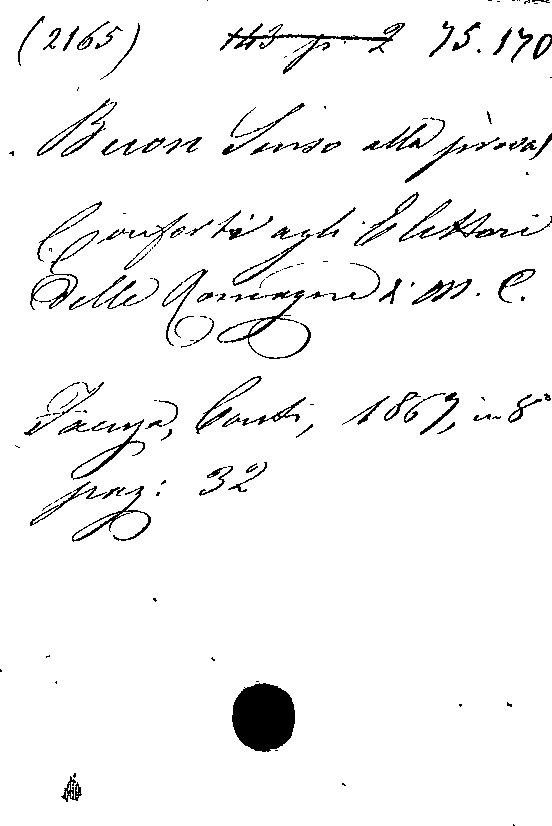 (2165) 143 p. 2 75.170
Buon Senso alla prova!
Conforti agli Elettori
delle Romagne di M. C.
Faenza, Conti, 1867, in 8°
pag: 32